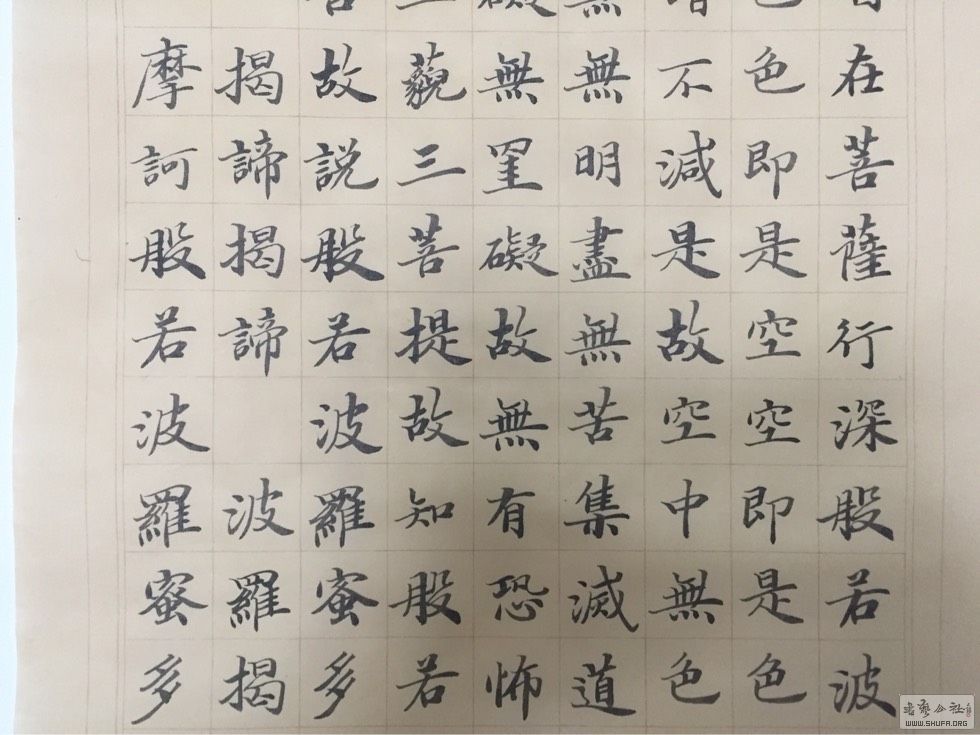 在菩薩行深般若波
色即是空空即是色
不減是故空中無色
無明盡無苦集滅道
無罣礙故無有恐怖
藐三菩提故知般若
故說般若波羅蜜多
揭諦揭諦 波羅揭
摩訶般若波羅蜜多
書藝公社
WWW.SHUFA.ORG